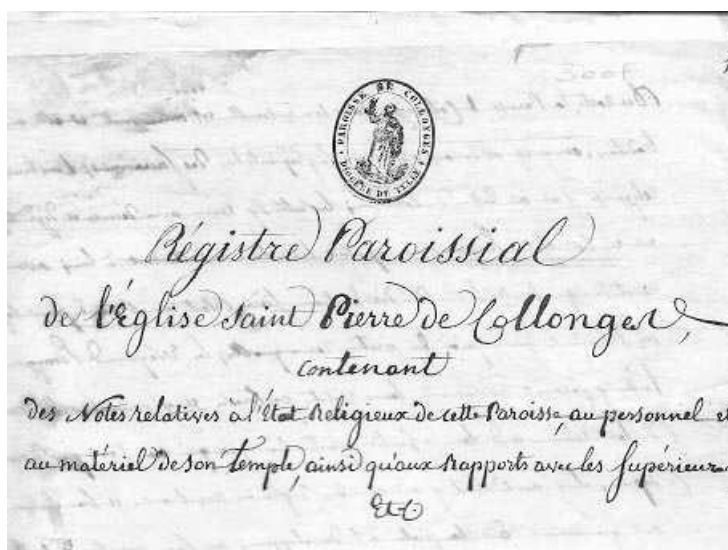 PAROISSE DE COLLONGES
DIOCÈSE DE TULLE
Régistre Paroissial
de l'Église Saint Pierre de Collonges,
contenant
des Notes relatives à l'État Religieux de cette Paroisse, au personnel et
au matériel de son temple, ainsi qu'aux Rapports avec les Supérieurs
Etc